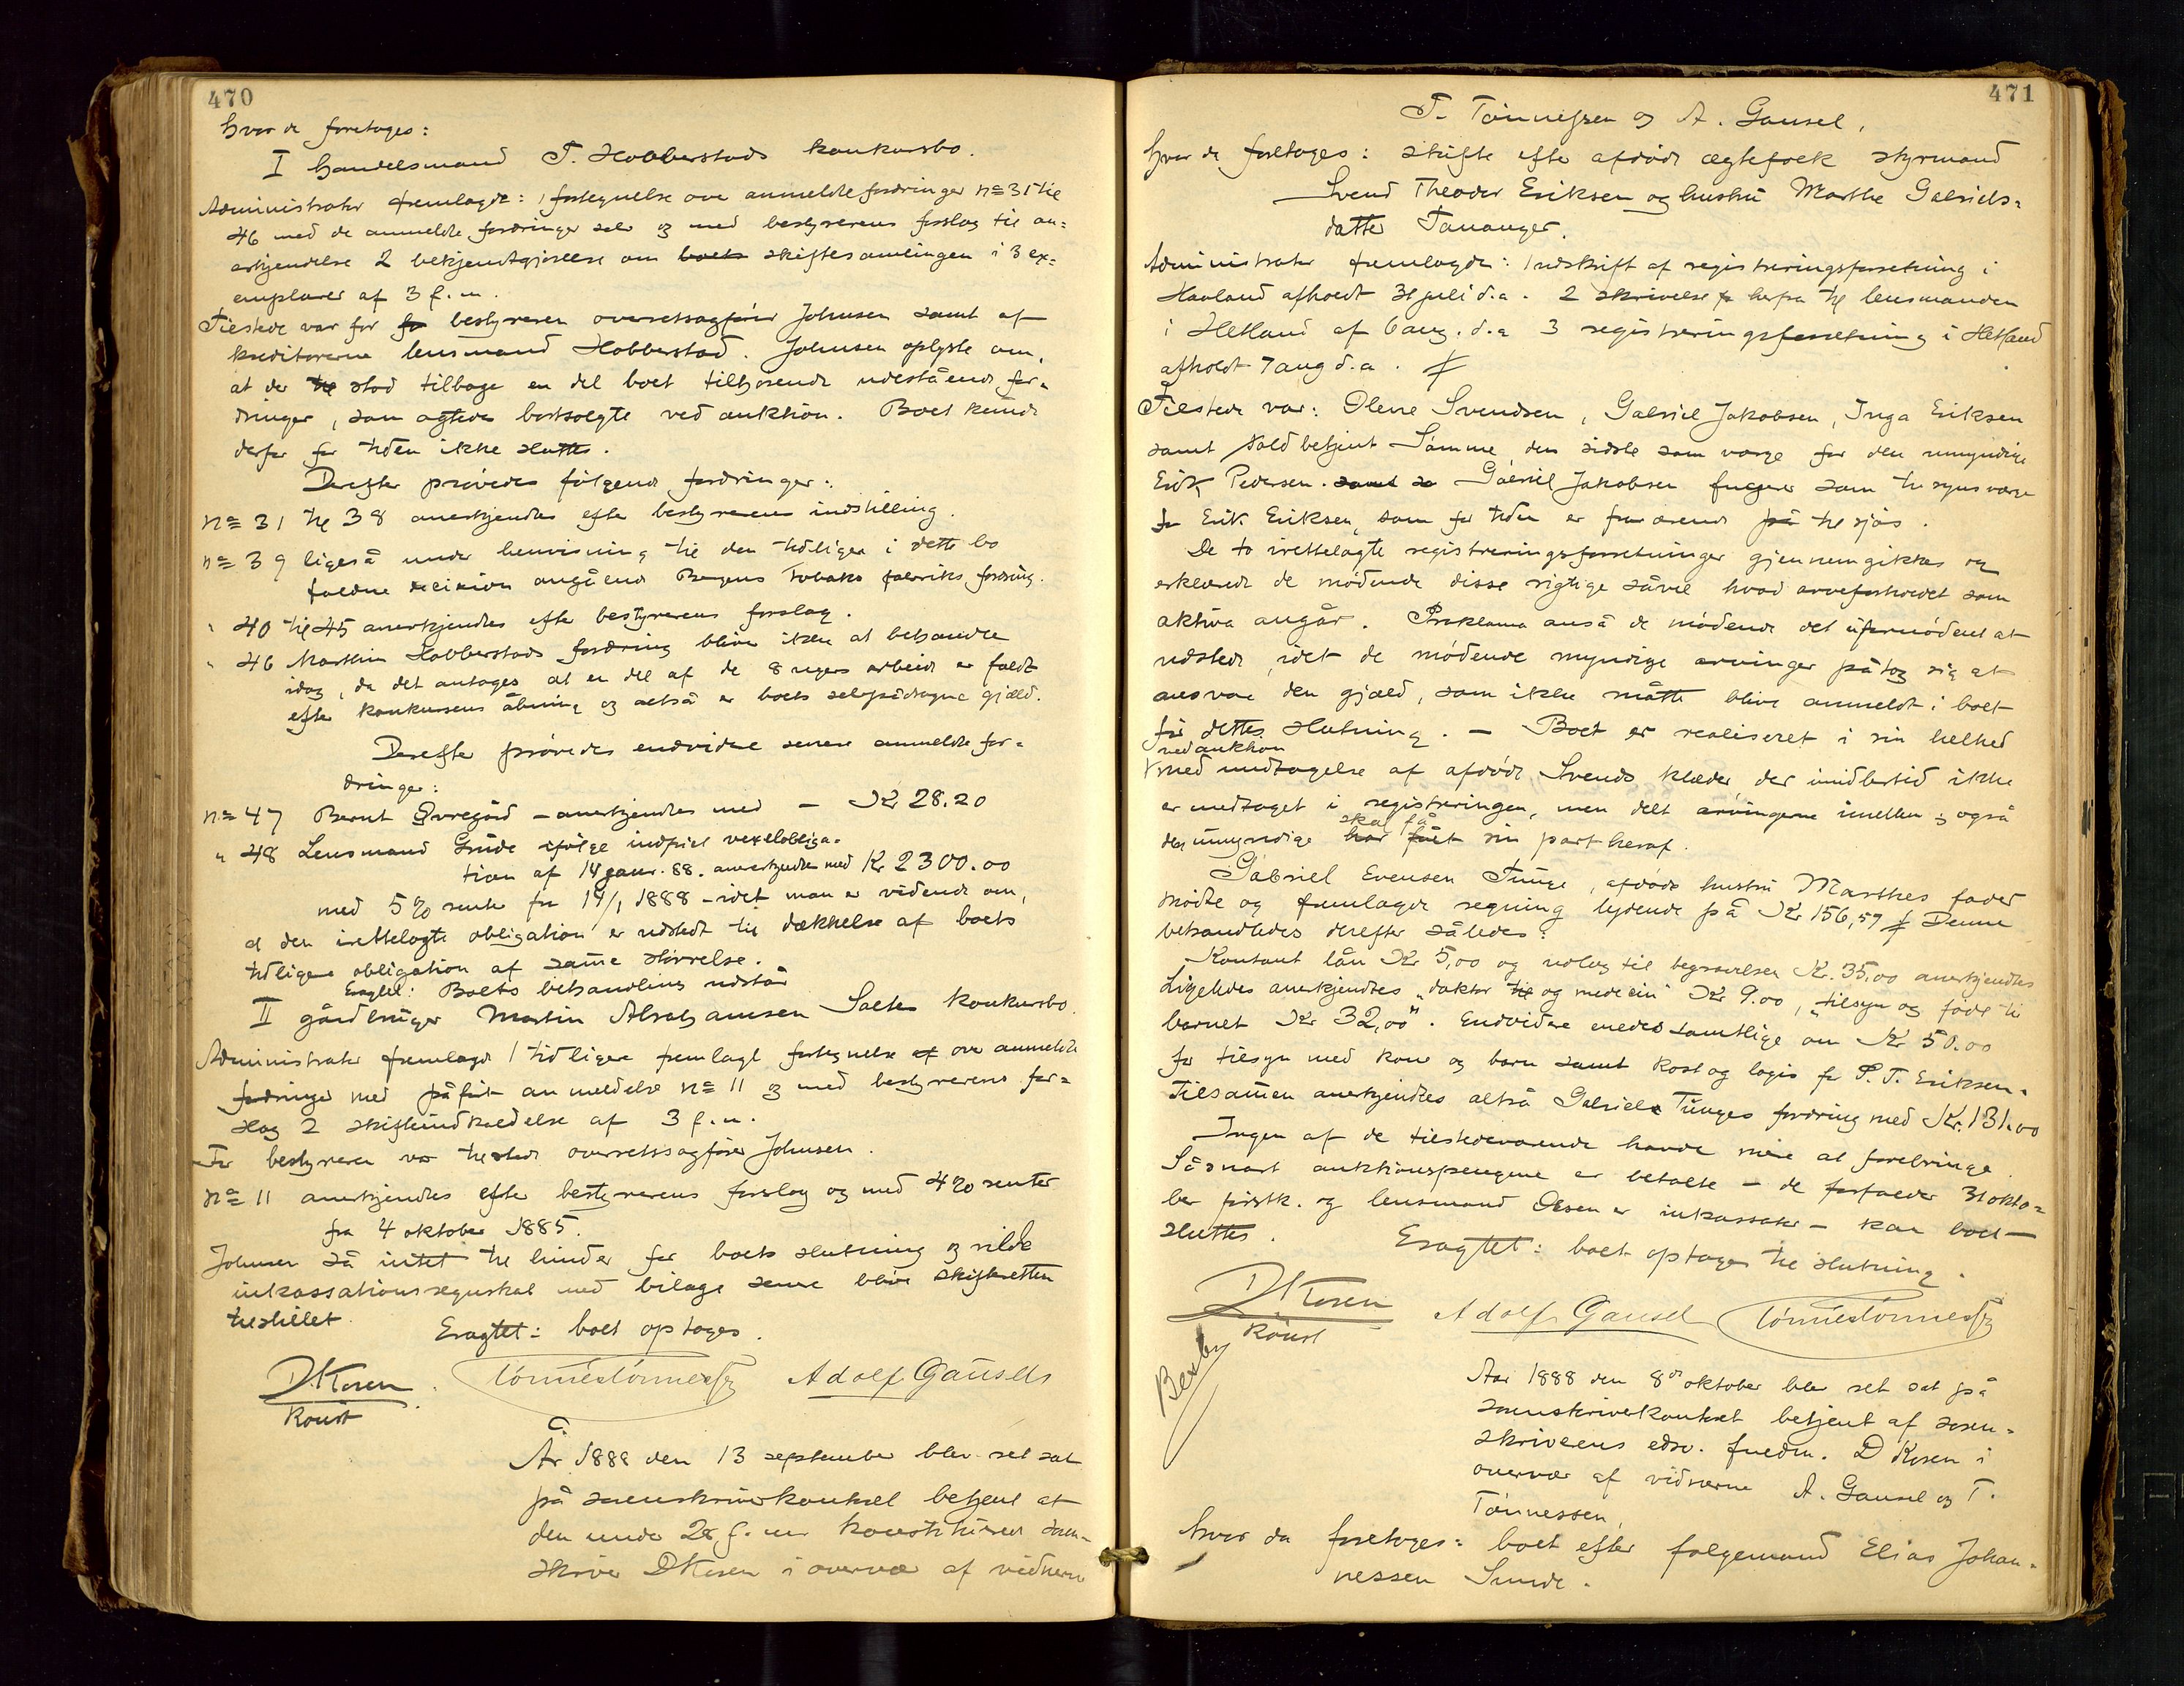 470
hvor da foretoges:
I handelsmand T. Hobberstads konkursbo.
Administrator fremlagde: 1 fortegnelse over anmeldte fordringer no 31 til
46 med de anmeldte fordringer selv og med bestyrerens forslag til an=
erkjendelse 2 bekjendtgjørelse om boets skiftesamlingen i 3 ex=
emplarer af 3 f.m.
Tilstede var for fo bestyreren overretssagfører Johnsen samt af
kreditorerne lensmand Hobberstad. Johnsen oplyste om,
at der til stod tilbage en del boet tilhørende udestående for=
dringer, som agtedes bortsolgte ved auktion. Boet kunde
derfor for tiden ikke sluttes.
Derefter prøvedes følgende fordringer:
no 31 til 38 anerkjendtes efter bestyrerens indstilling.
no 39 ligeså under henvisning til den tidligere i dette bo
faldne decision angående Bergens Tobaks fabriks fordring.
" 40 til 45 anerkjendtes efter bestyrerens forslag.
" 46 Marthin Hobberstads fordring bliver ikke at behandle
idag, da det antages at en del af de 8 ugers arbeide er faldt
efter konkursens åbning og altså er boets selvpådragne gjæld.
Derefter prøvedes endvidere senere anmeldte for=
dringer:
no 47 Bernt Øvregård – anerkjendtes med – Kr 28.20
" 48 Lensmand Grude ifølge indfriet vexelobliga=
tion af 14 januar. 88. anerkjendtes med Kr 2300.00
med 5% rente fra 14/1 1888 – idet man er vidende om,
at den irettelagte obligation er udstedt til dækkelse af boets
tidligere obligation af samme størrelse.
Eragtet: Boets behandling udstår
II gårdbruger Martin Abrahamsen Saltes konkursbo.
Administrator fremlagde 1 tidligere fremlagt fortegnelse af over anmeldte
fordringer med påført anmeldelse no 11 og med bestyrerens for=
slag 2 skifteindkaldelse af 3 f.m.
For bestyreren var tilstede overretssagfører Johnsen.
no 11 anerkjendtes efter bestyrerens forslag og med 4% renter
fra 4 oktober 1885.
Johnsen så intet til hinder for boets slutning og vilde
inkassationsregnskab med bilage senere blive skifteretten
tilstillet.
Eragtet: boet optages.
D. Koren Tønnes Tønnessen Adolf Gausels
Konst
År 1888 den 13 september blev ret sat
på sorenskriverkontoret betjent af
den under 28 f.m. konstitueret soren=
skriver D Koren i overvær af vidnerne
471
T. Tønnessen og A. Gausel,
hvor da foretoges: skifte efter afdøde ægtefolk styrmand
Svend Theodor Eriksen og hustru Marthe Gabriels=
datter Tananger.
Administrator fremlagde: 1 udskrift af registreringsforretning i
Haaland afholdt 31 juli d.a. 2 skrivelse fr herfra til lensmanden
i Hetland af 6 aug. d.a 3 registreringsforretning i Hetland
afholdt 7 aug d.a.
Tilstede var: Olene Svendsen, Gabriel Jakobsen, Inga Eriksen
samt toldbetjent Sømme, den sidste som værge for den umyndige
Erik Pedersen. samt so Gabriel Jakobsen fungerer som tilsynsværge
for Erik Eriksen, som for tiden er fraværende på til sjøs.
De to irettelagte registreringsforretninger gjennemgikkes og
erklærede de mødende disse rigtige såvel hvad arveforholdet som
aktiva angår. Proklama anså de mødende det ufornødent at
udstede, idet de mødende myndige arvinger påtog sig at
ansvare den gjæld, som ikke måtte blive anmeldt i boet
før dettes slutning. – Boet er realiseret i sin helhed
ved auktion
med undtagelse af afdøde Svends klæder, der imidlertid ikke
er medtaget i registreringen, men delt arvingerne imellem og også
skal få
den umyndige har fået sin part heraf.
Gabriel Evensen Tunge, afdøde hustru Marthes fader
mødte og fremlagde regning lydende på Kr 156,59 Denne
behandledes derefter således:
Kontant lån Kr 5,00 og udlæg til begravelsen Kr. 35.00 anerkjendtes
Ligeledes anerkjendtes "doktor til og medecin" Kr 9.00, "tilsyn og føde til
barnet Kr 32,00". Endvidere enedes samtlige om Kr 50.00
for tilsyn med kone og barn samt kost og logis for S. T. Eriksen.
Tilsammen anerkjendtes altså Gabriel Tunges fordring med Kr. 131.00
Ingen af de tilstedeværende havde mere at forebringe.
Såsnart auktionspengene er betalte – de forfalder 31 okto=
ber førstk. og lensmand Olsen er inkassator – kan boet
sluttes.
Eragtet: boet optages til slutning.
D. Koren Adolf Gausel Tønnes Tønnessen
Konst
Aar 1888 den 8de oktober blev ret sat på
sorenskriverkontoret betjent af soren=
skriverens edsv. fuldm. D Koren i
overvær af vidnerne A. Gausel og T.
Tønnessen,
hvor da foretoges: boet efter følgemand Elias Johan=
nessen Sunde.